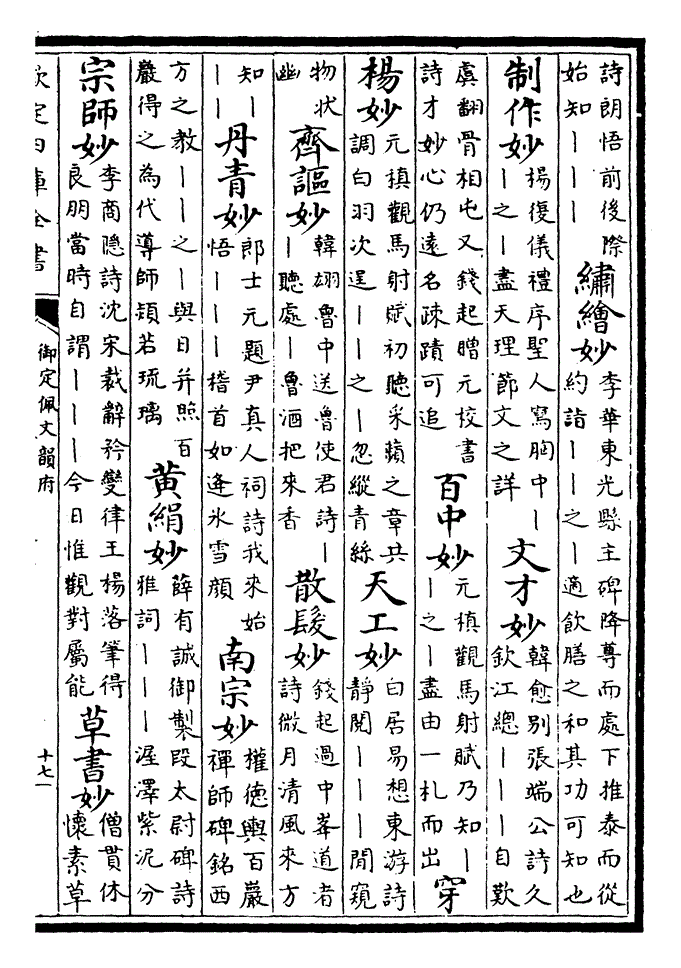 詩朗悟前後際
始知丨丨丨
繡繪妙
李華東光縣主碑降尊而處下推泰而從
約詣丨丨之丨適飲膳之和其功可知也
制作妙
楊復儀禮序聖人寫胸中丨
丨之丨盡天理節文之詳
文才妙
韓愈別張端公詩久
欽江總丨丨丨自歎
虞翻骨相屯又錢起贈元校書
詩才妙心仍遠名疎蹟可追
百中妙
元稹觀馬射賦乃知丨
丨之丨盡由一札而出
穿
楊妙
元稹觀馬射賦初聽采蘋之章共
調白羽次逞丨丨之丨忽縱青絲
天工妙
白居易想東游詩
靜閱丨丨丨閒窺
物状
幽
齊謳妙
韓翃魯中送魯使君詩丨
丨聽處丨魯酒把來香
散髮妙
錢起過中峯道者
詩微月清風來方
知丨
丨丨
丹青妙
郎士元題尹真人祠詩我來始
悟丨丨丨稽首如逢氷雪顔
南宗妙
權德輿百巖
禪師碑銘西
方之教丨丨之丨與日并照百
巖得之為代導師頴若琉璃
黄絹妙
薛有誠御製段太尉碑詩
雅詞丨丨丨渥澤紫泥分
宗師妙
李商隱詩沈宋裁辭矜變律王楊落筆得
良朋當時自謂丨丨丨今日惟觀對屬能
草書妙
僧貫休
懷素草
欽定四庫全書
御定佩文韻府
十七